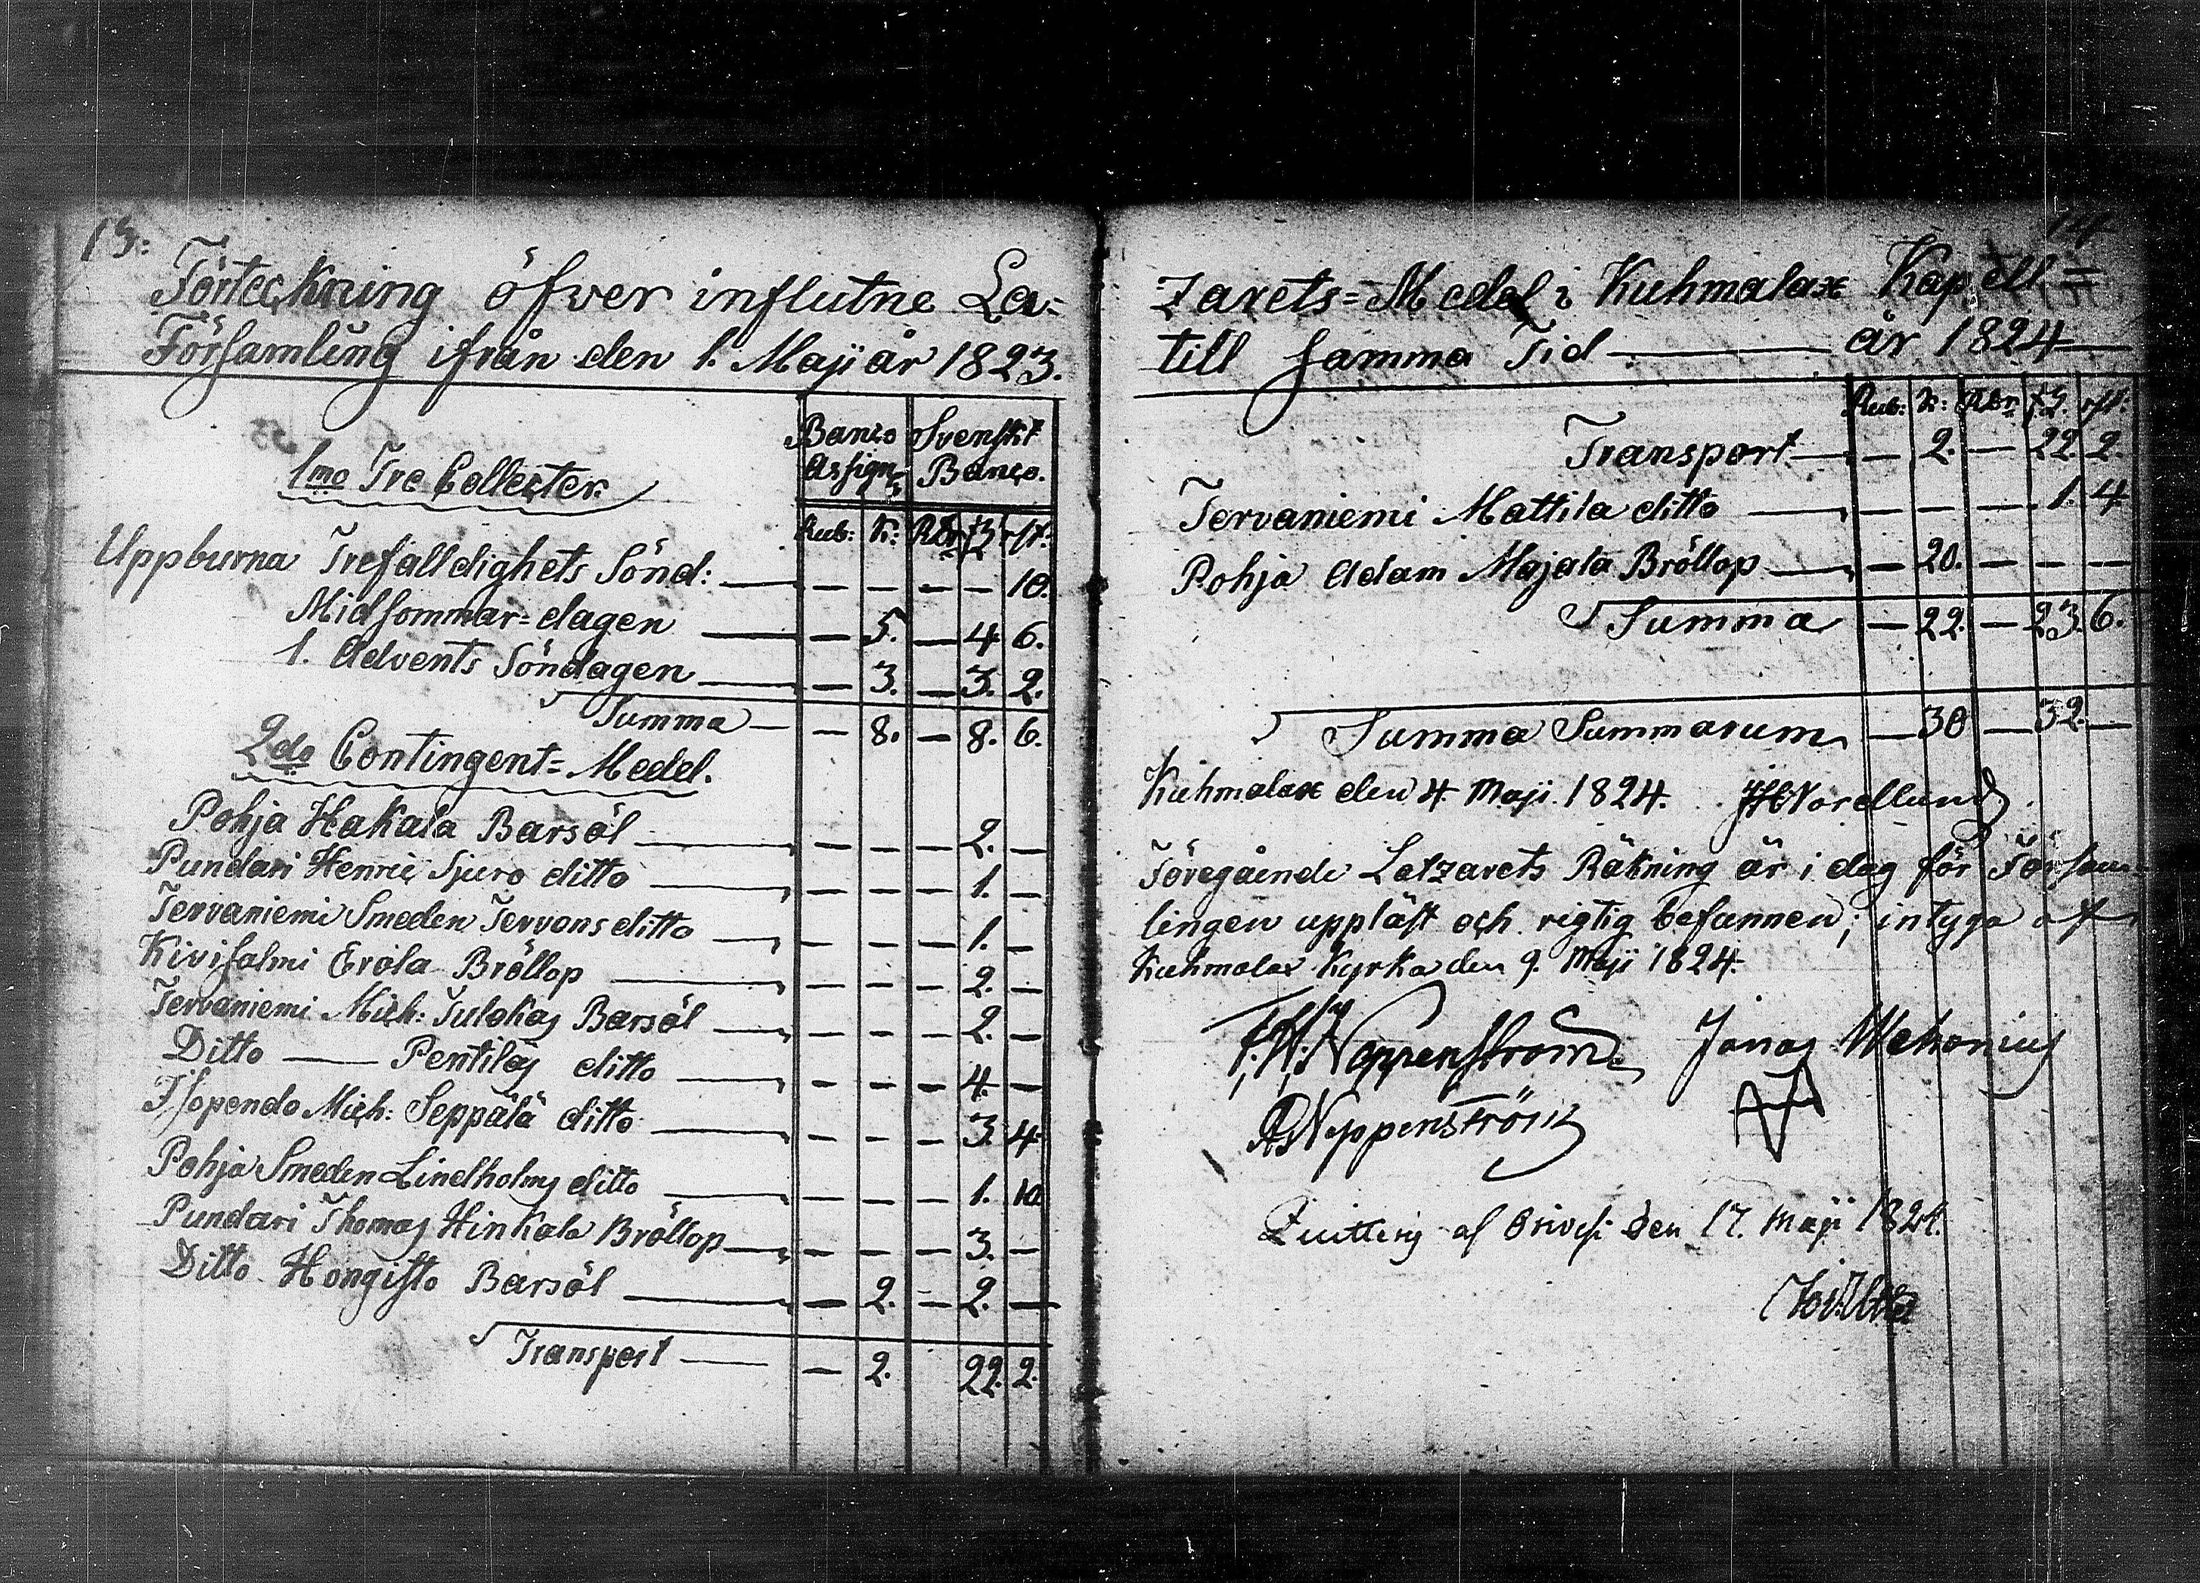 13.
Förteckning öfver influtne La-
Församling ifrån den 1. Maji år 1823.
Banco Svenskt
Assign. Banco.
1mo Tre Collecter.
Rub: K: RDr ß. rst:
Uppburna Trefalldighets Sönd: — — — — 10.
Midsommar-dagen — 5. — 4. 6.
1. Advents Söndagen — 3. — 3. 2.
Summa — 8. — 8. 6.
2do Contingent-Medel.
Pohja Hakala Barsöl — — — 2. —
Pundari Henric Sjuro ditto — — — 1. —
Tervaniemi Smeden Tervons ditto — — — 1. —
Kivisalmi Erola Bröllop — — — 2. —
Tervaniemi Mich: Tulokas Barsöl — — — 2. —
Ditto — Pentilas ditto — — — 4. —
Isopendo Mich: Seppälä ditto — — — 3. 4.
Pohja Smeden Lindholms ditto — — — 1. 10.
Pundari Thomas Hinkala Bröllop — — — 3. —
Ditto Hongisto Barsöl — 2. — 2. —
Transport — 2. 22. 2.
14
zarets-Medel i Kuhmalax Kapell-
till samma Tid — år 1824
Rub: K: RDr ß. rst:
Transport — 2. — 22. 2.
Tervaniemi Mattila ditto — — — 1. 4
Pohja Adam Majala Bröllop — 20. — — —
Summa — 22. — 23. 6.
Summa Summarum — 30 — 32. —
Kuhmalax den 4. Maji 1824. Nordlund
Föregående Latzarets Räkning är i dag för Försam-
lingen uppläst och rigtig befannen; intyga
Kuhmalax Kyrka den 9. Maji 1824.
Neppenström Jonas Wekonius
Neppenström
Quitteras af Orivesi den 17. Maji 1824.